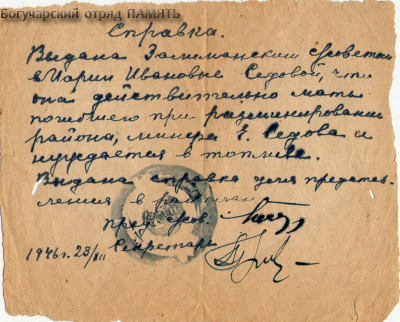 Богучарский отряд ПАМЯТЬ
Справка.
Выдана Залиманским с/советом
Марии Ивановне Седовой, что
она действительно мать
погибшего при разминировании
района, минера Е. Седова и
нуждается в топливе.
Выдана справка для представ-
ления в
Пред. сов.
Секретарь
1946 г. 23/III